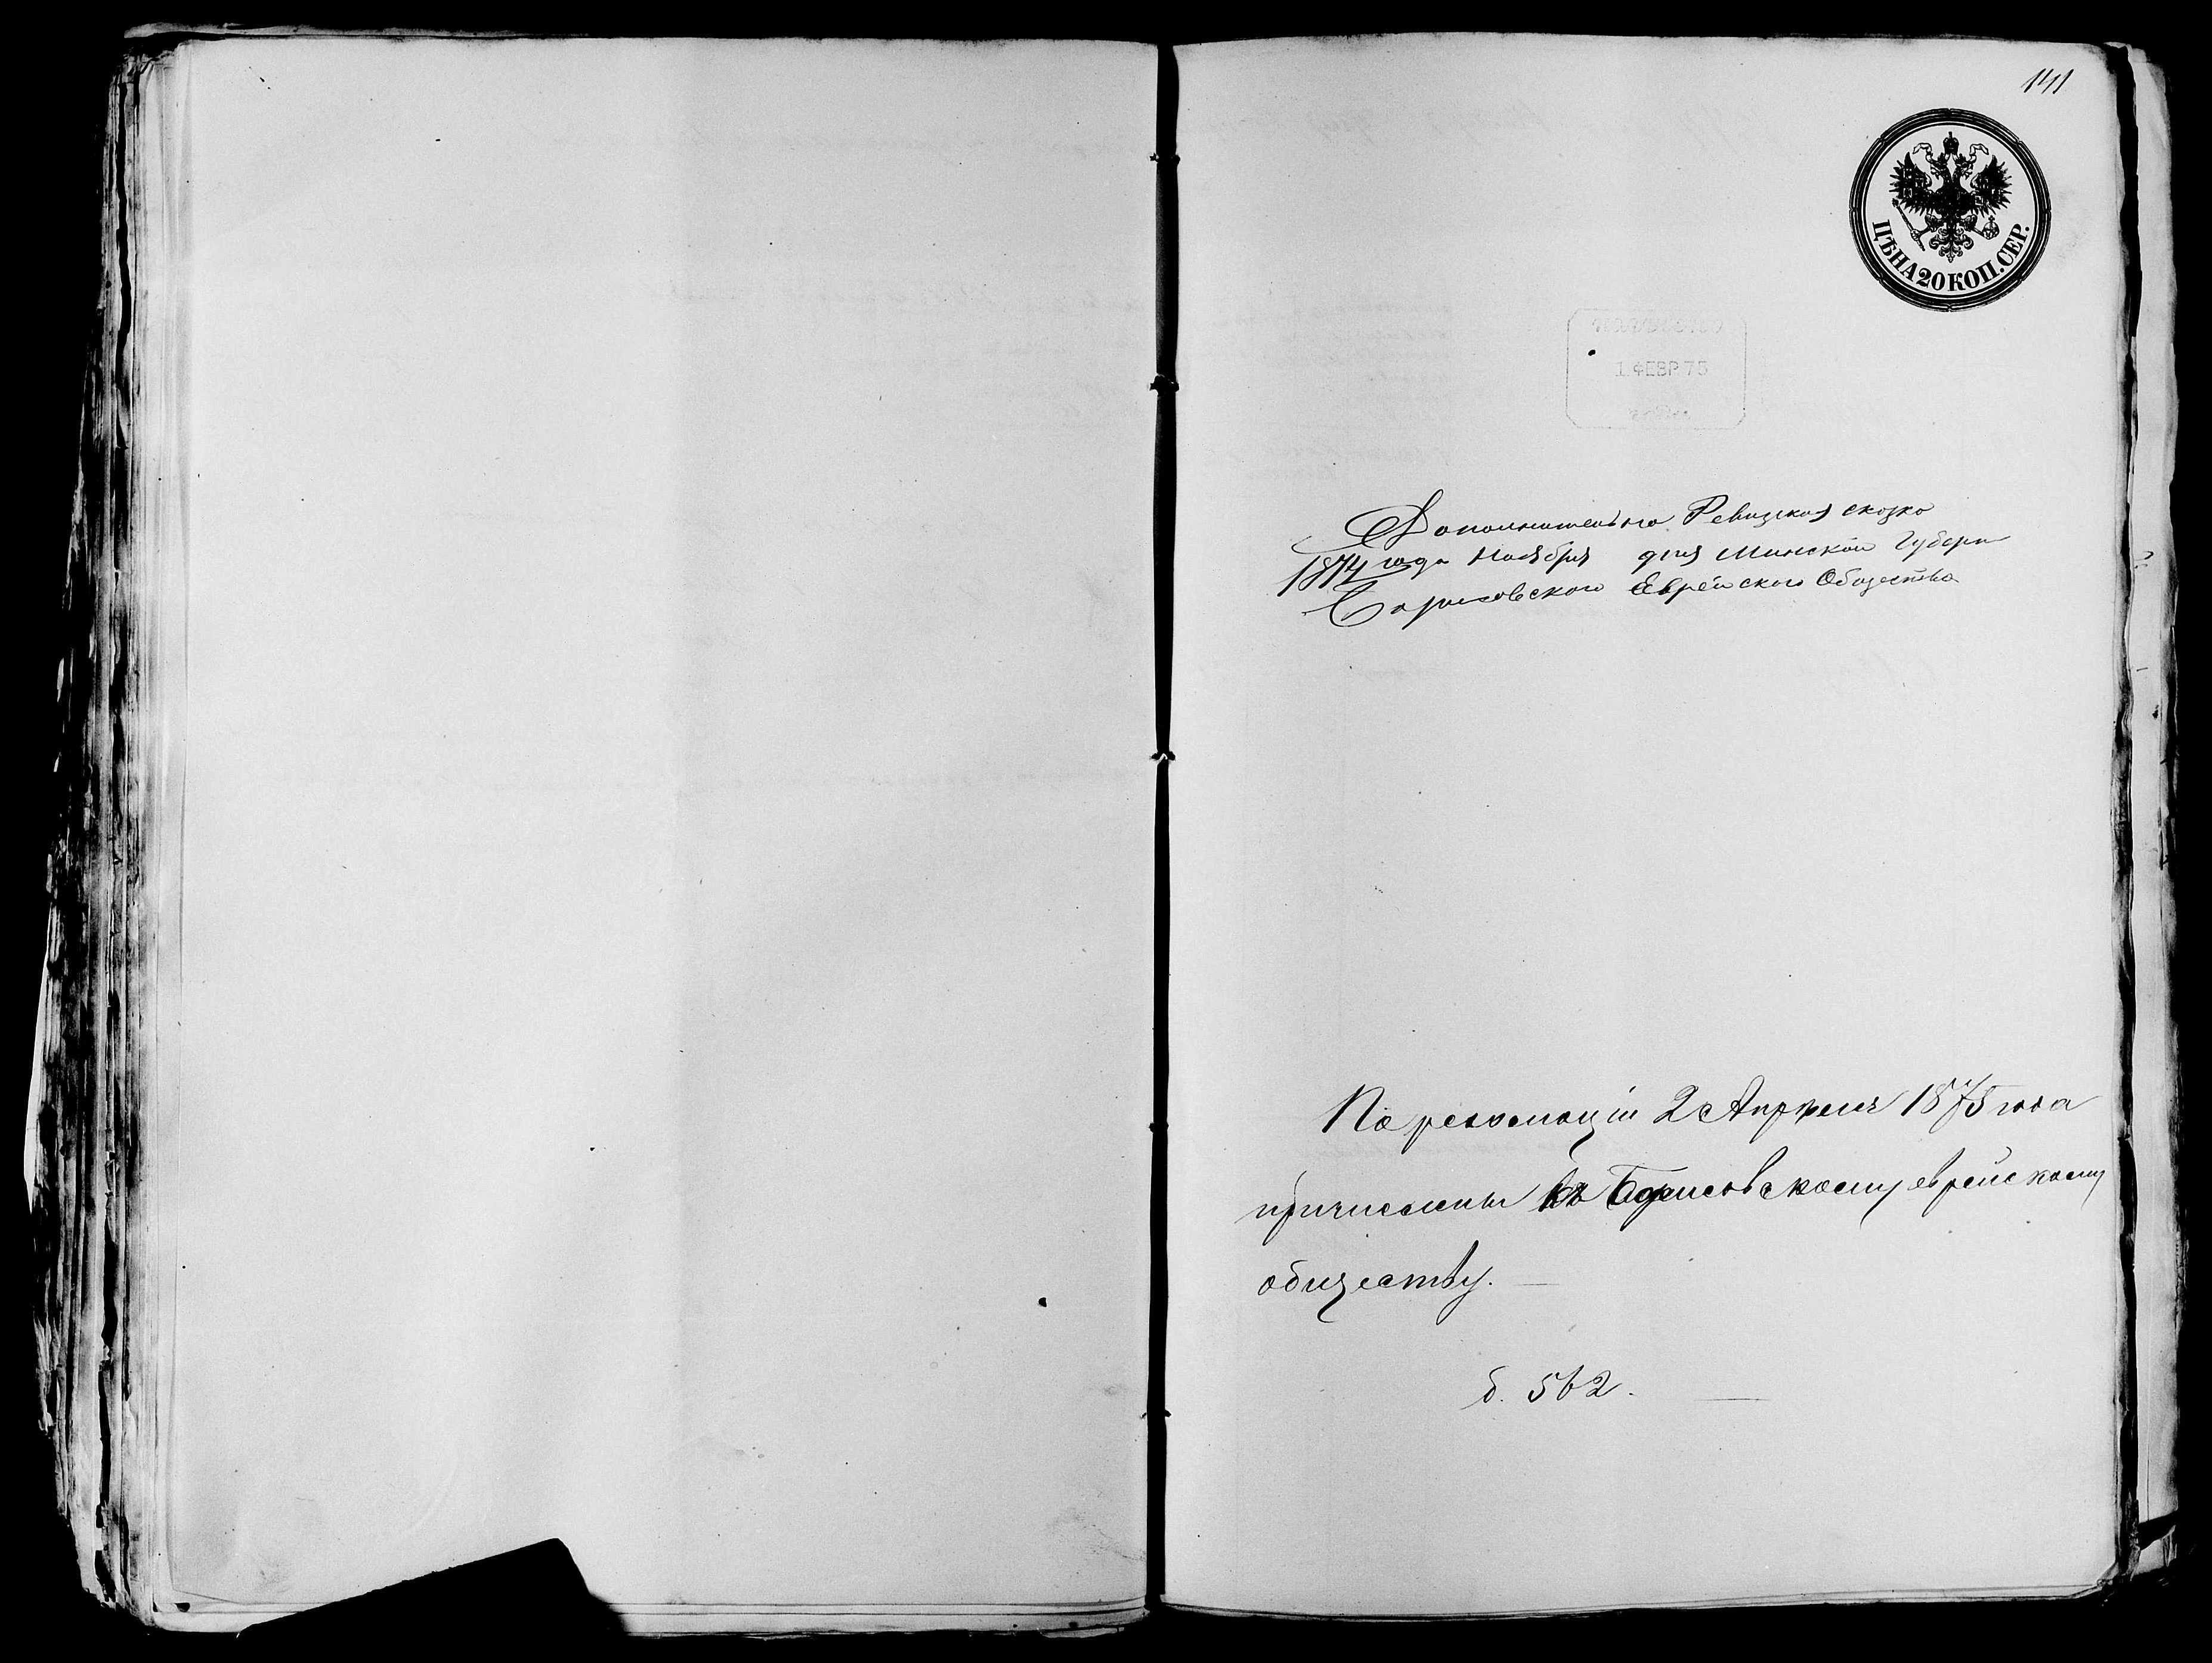 141
ЦѢНА 20 КОП. СЕР.
1 ФЕВР 75
Дополнительна Ревизская сказка
1874 года Ноября дня Минской Губерн
Борисовского Еврейского Общества
По резолюціи 2 Апрѣля 1875 года
причислены къ Борисовскому еврейскому
обществу. —
б. 562. —